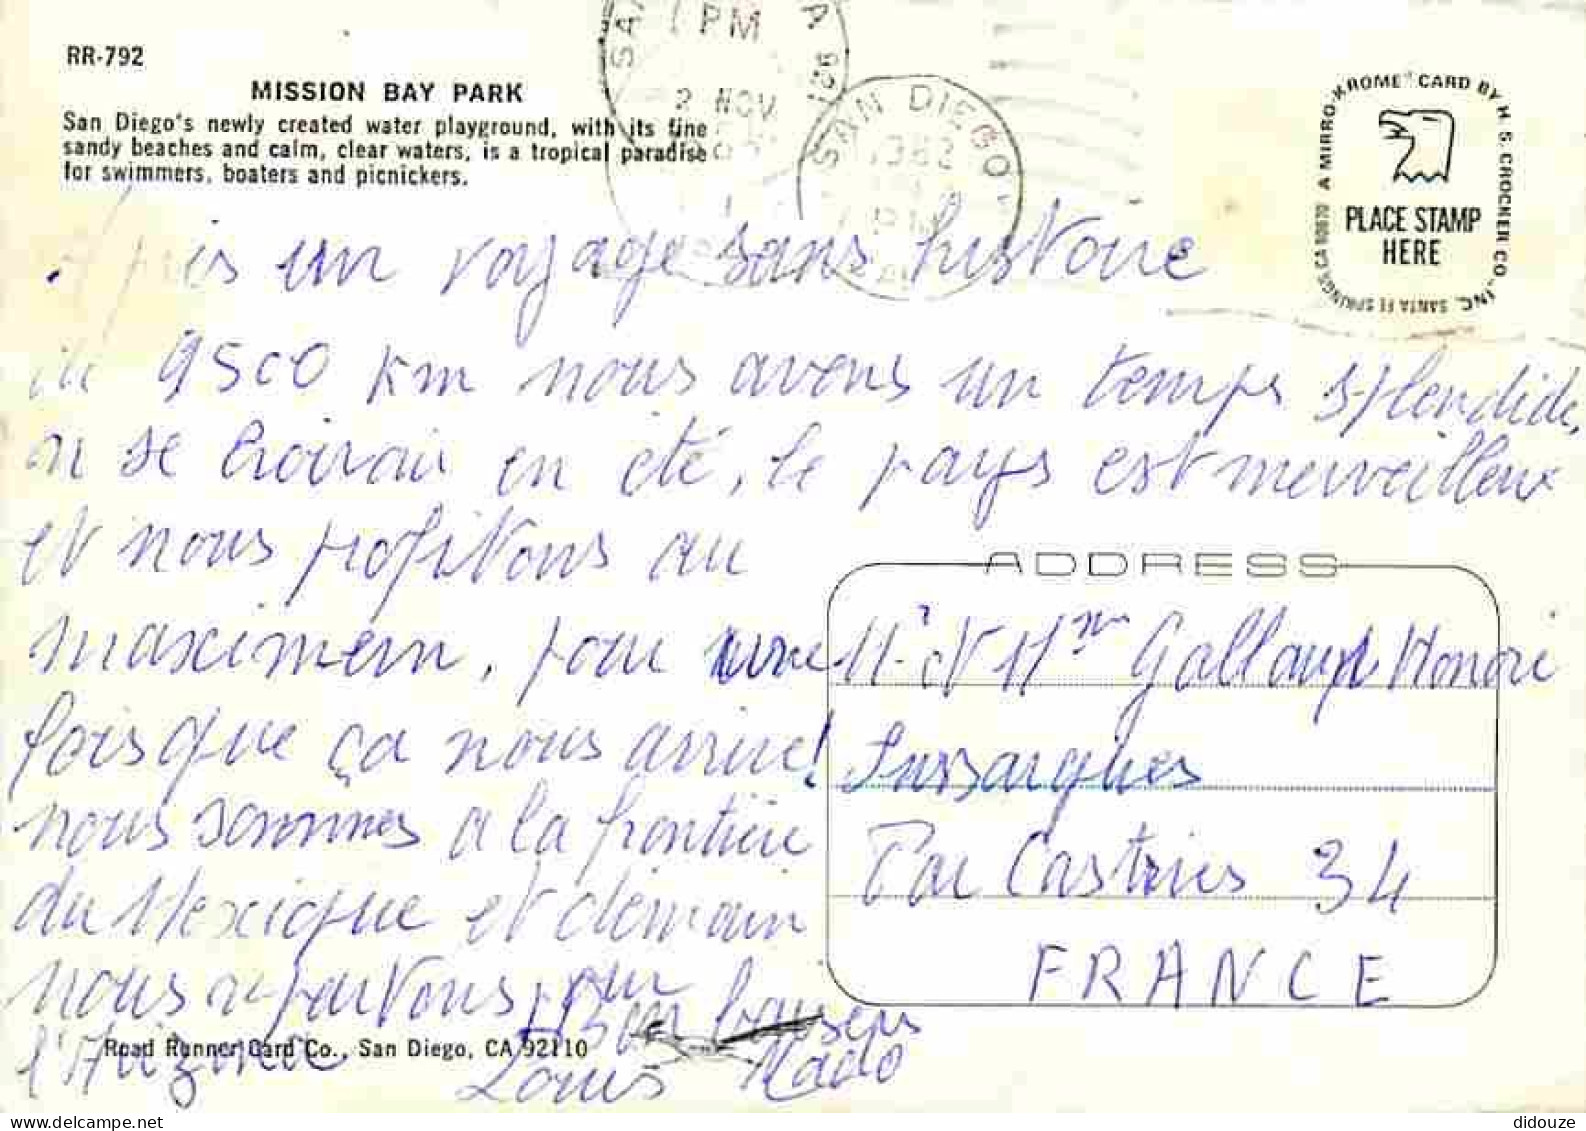 RR-792
MISSION BAY PARK
San Diego's newly created water playground, with its fine
sandy beaches and calm, clear waters, is a tropical paradise
for swimmers, boaters and picnickers.
1 PM
2 NOV
SAN DIEGO
1982
PM
A MIRRO-KROME® CARD BY H. S. CROCKER CO., INC. SANTA FE SPRINGS, CA 90670
PLACE STAMP
HERE
un voyage sans histoire
de 9500 km nous avons un temps splendide,
on se croirait en été, le pays est merveilleux
et nous profitons au
maximum, pour une
fois que ça nous arrive!
nous sommes a la frontière
du Mexique et demain
nous repartons pour
l'Arizona
Bon baisers
Louis Mado
ADDRESS
Mr et Mme Gallaup Honoré
Sussargues
Par Castries 34
FRANCE
Road Runner Card Co., San Diego, CA 92110
delcampe.net
didouze